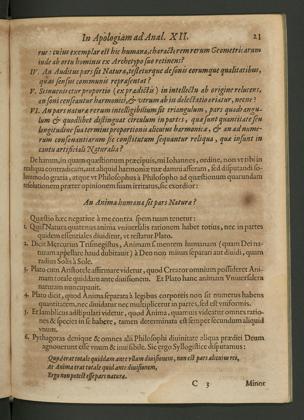 In Apologiam ad Anal. XII. 21
rus: cuius exemplar est hic humana, characterem rerum Geometricarum
inde ab ortu hominis ex Archetypo sue retinens?
IV. An Auditus pars sit Natura, testeturque de sonis eorumque qualitatibus,
quas sensus communis repræsentat?
V. Si enuncietur proportio (ex prædictis) in intellectu ab origine relucens,
an soni censeantur harmonici, & utrum ab iis delectatio oriatur, nécne?
VI. An pars natura rerum intelligibilium sit triangulum, pars quadrangu-
lum & quodlibet distinguat circulum in partes, quæ sunt quantitate seu
longitudine suæ termini proportionis alicuius harmonicæ, & an ad nume-
rum consonantiarum sic constitutum sequantur reliqua, quæ insunt in
cantu artificiali Naturalia?
De harum, in quam quæstionum præcipuis, mi Iohannes, ordine, non vt tibi in
aliqua contradicam, aut aliquid harmoniæ tuæ damni afferam, sed disputandi so-
lummodo gratia, atque vt Philosophus à Philosopho ad quæstionum quarundam
resolutionem præter opinionem suam irritatus, sic exordior:
An Anima humana sit pars Naturæ?
Quæstio hæc negatiuè à me contra spem tuam tenetur:
1. Quia Natura quatenus anima vniuersalis rationem habet totius, nec in partes
quidem essentiales diuiditur, vt testatur Plato.
2. Dicit Mercurius Trismegistus, Animam seu mentem humanam (quam Dei na-
turam appellare haud dubitaui) à Deo non minus separari aut diuidi, quam
radius Solis à Sole.
3. Plato cum Aristotele affirmare videtur, quod Creator omnium possideret Ani-
mam totale quiddam ante diuisionem. Et Plato hanc animam Vniuersalem
naturam nuncupauit.
4. Plato dicit, quod Anima separata à legibus corporeis non sit numerus habens
quantitatem, nec diuidatur nec multiplicetur in partes, sed est vniformis.
5. Et Iamblicus astipulari videtur, quod Anima, quamuis videatur omnes ratio-
nes & species in se habere, tamen determinata est semper secundum aliquid
vnum.
6. Pythagoras denique & omnes alii Philosophi diuinitate aliqua præditi Deum
agnouerunt esse vnum & inuisibile. Sic ergo Syllogisticè disputamus:
Quod erat totale quiddam ante vllam diuisionem, non est pars alicuius rei,
At Anima erat totale quid ante diuisionem,
Ergo non potest esse pars naturæ.
C 3 Minor